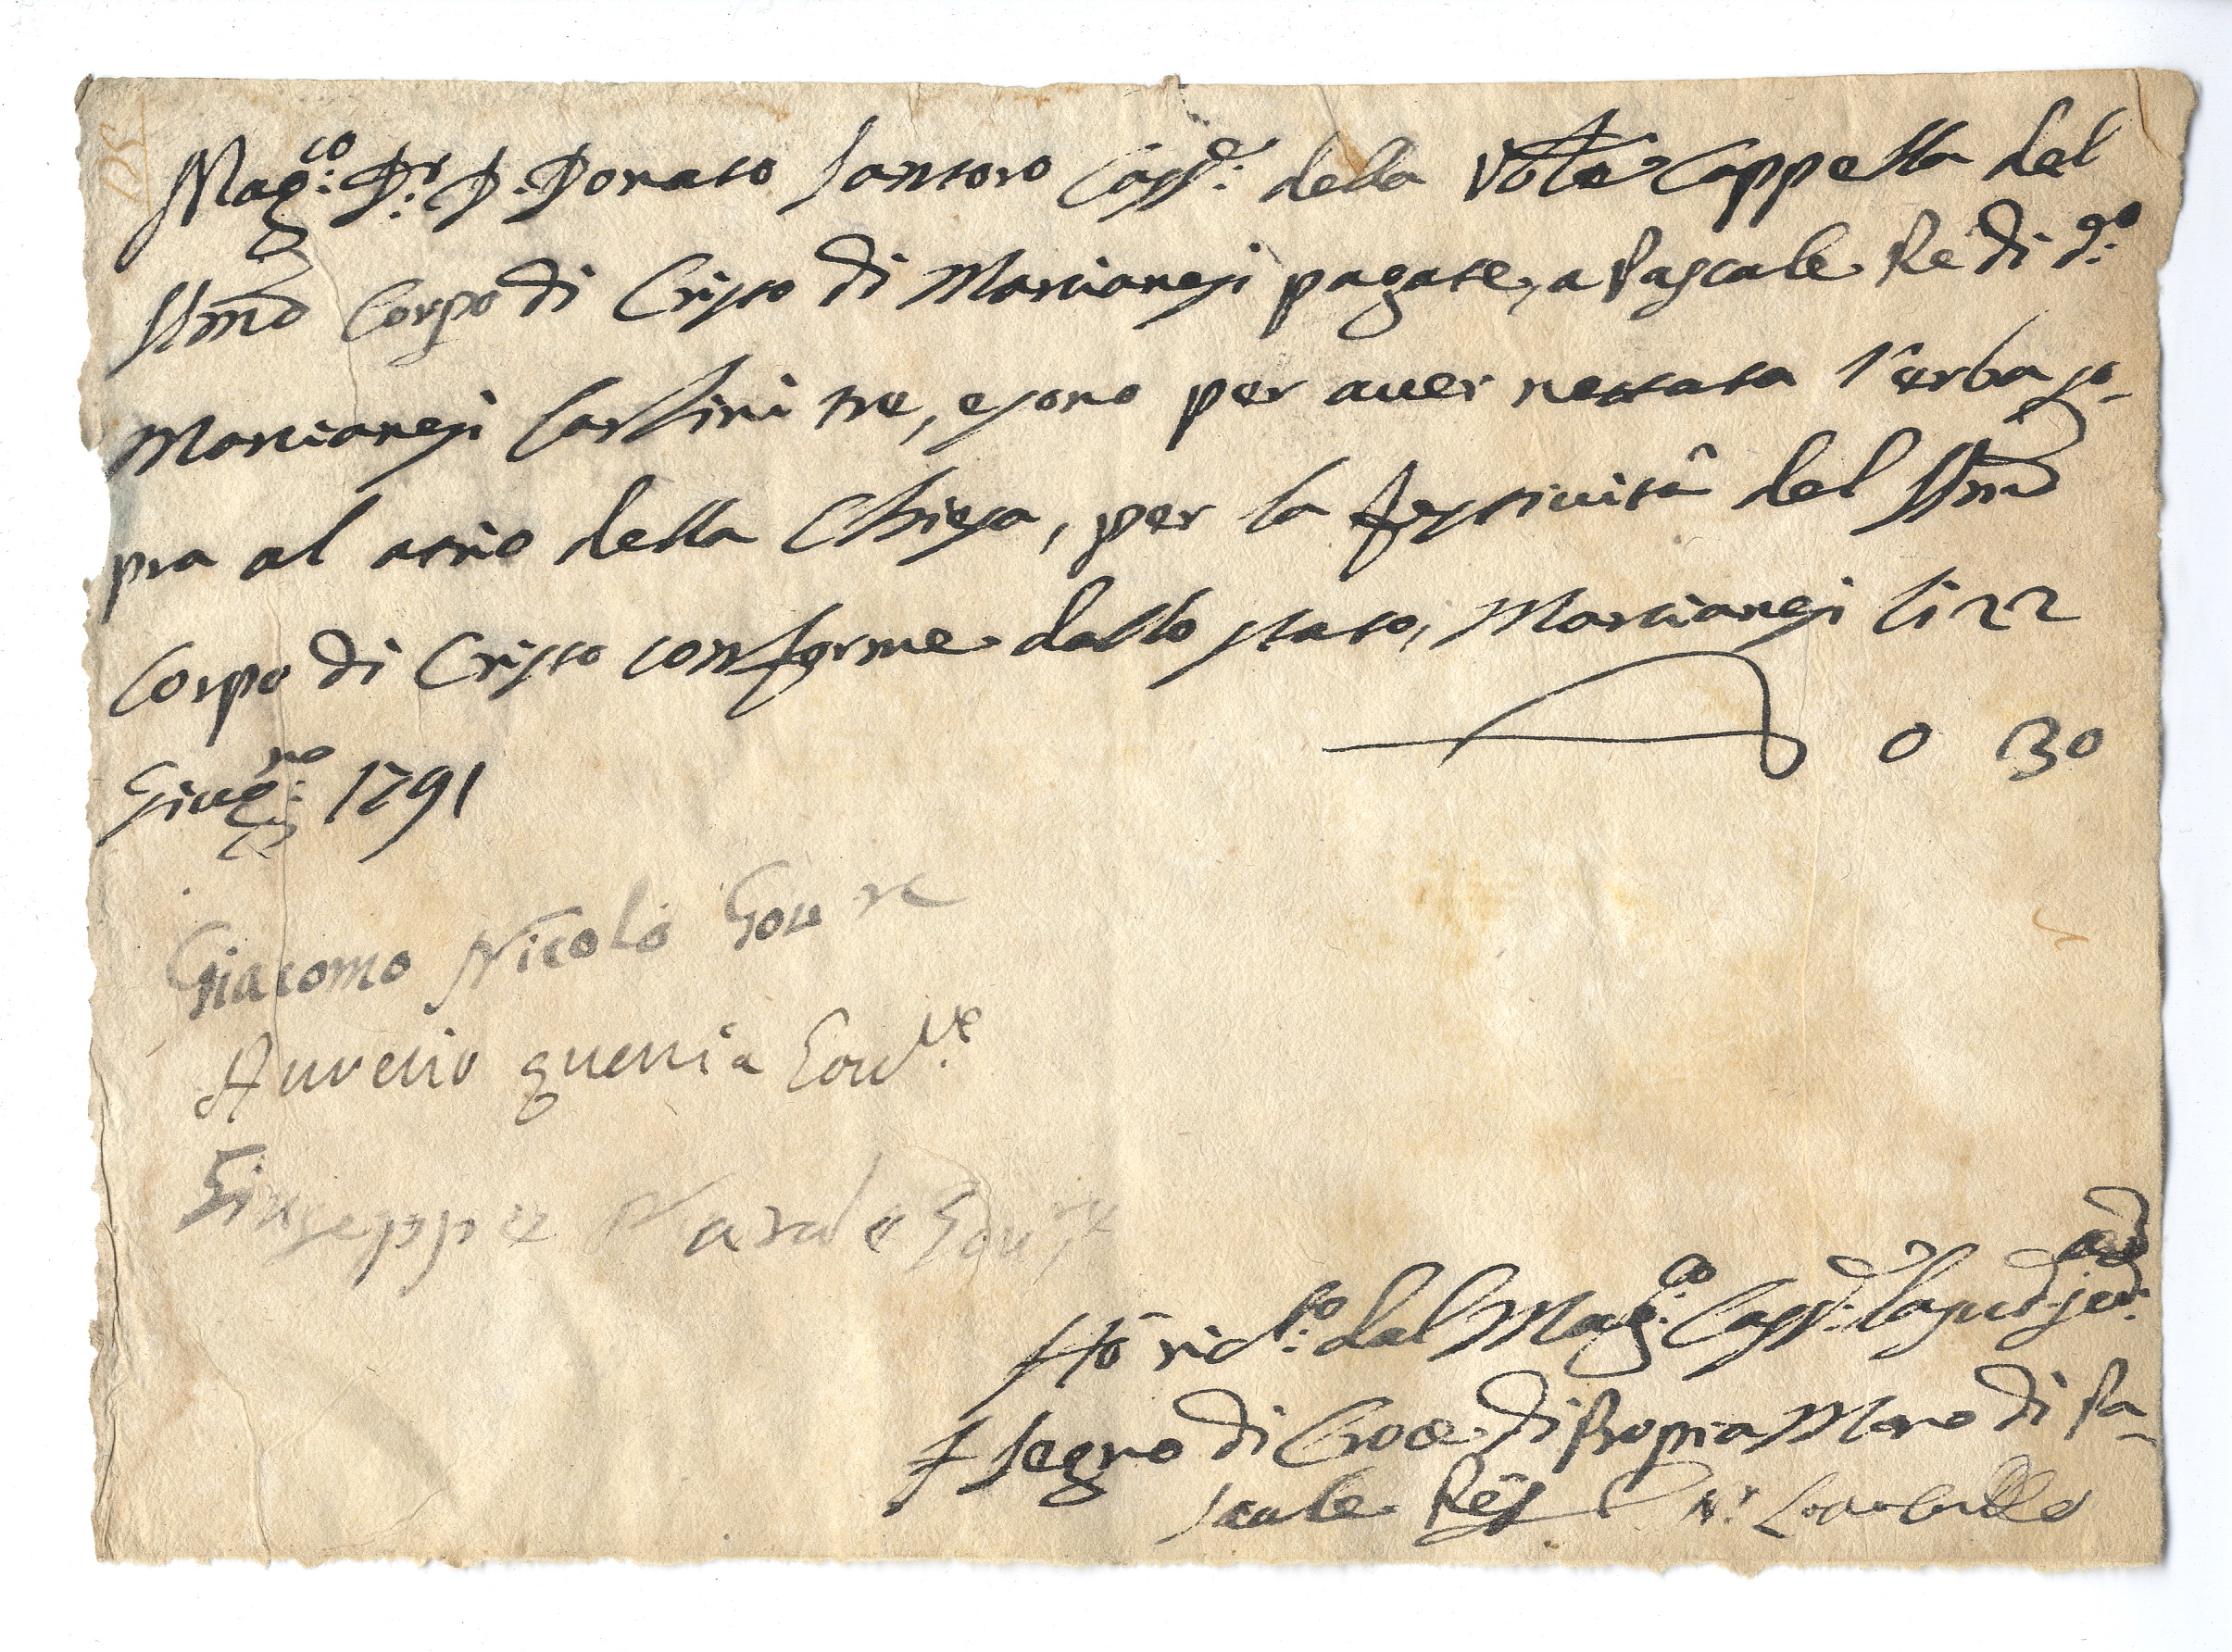 Mag:co Dr: D. Donato Santoro Cass:e della Vble Cappella del
SSmo Corpo di Cristo di Marcianesi pagate, a Pascale Re di d:o
Marcianesi Carlini tre, e sono per aver nettata l'erba so-
pra al atrio della Chiesa, per la festività del SSmo
Corpo di Cristo conforme dallo stato, Marcianesi li 22
Giug:no 1791
0 30
Giacomo Nicolò Goure
Aurelio guerria Gou:re
Giuseppe Gou:re
Hò ric:to dal Mag:co Cass:e
+ Segno di Croce di Propria Mano di Pa-
scale Re